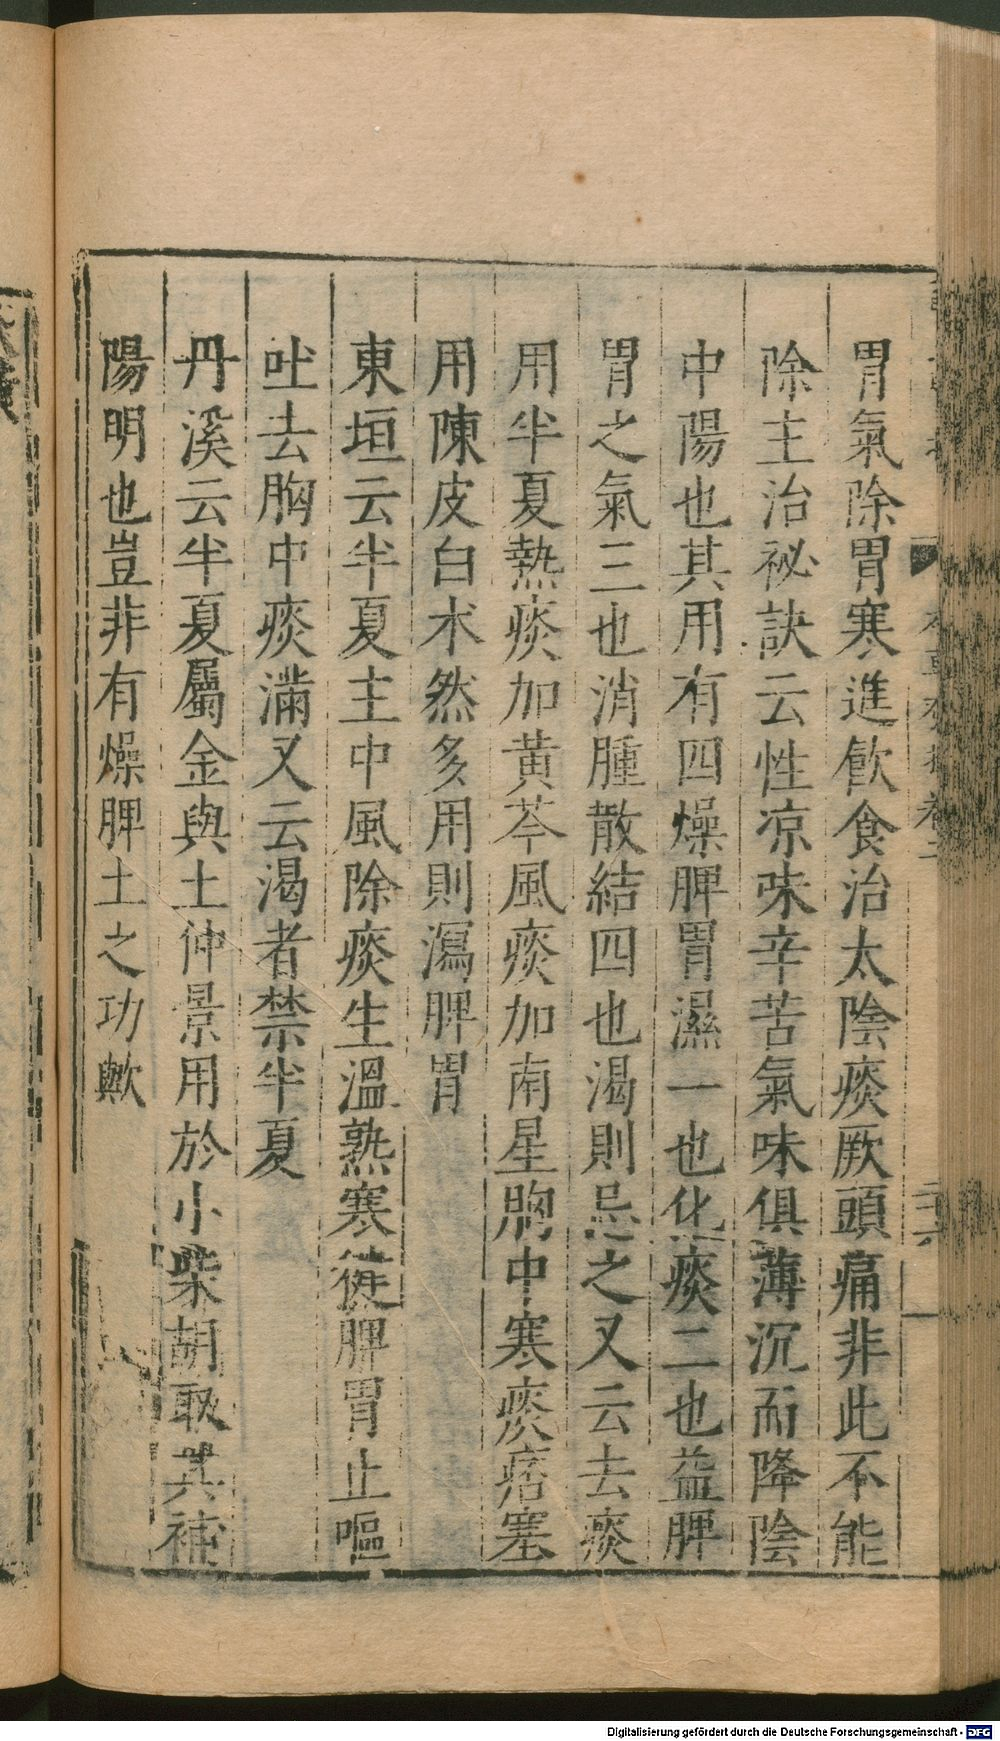 胃氣除胃寒進飮食治太陰痰厥頭痛非此不能
除主治祕訣云性凉味辛苦氣味俱薄沉而降陰
中陽也其用有四燥脾胃濕一也化痰二也益脾
胃之氣三也消腫散結四也渴則忌之又云去痰
用半夏熱痰加黄芩風痰加南星胸中寒痰痞塞
用陳皮白朮然多用則瀉脾胃
東垣云半夏主中風除痰生溫熟寒健脾胃止嘔
吐去胸中痰滿又云渴者禁半夏
丹溪云半夏屬金與土仲景用於小柴胡取其補
陽明也豈非有燥脾土之功歟
Digitalisierung gefördert durch die Deutsche Forschungsgemeinschaft - DFG